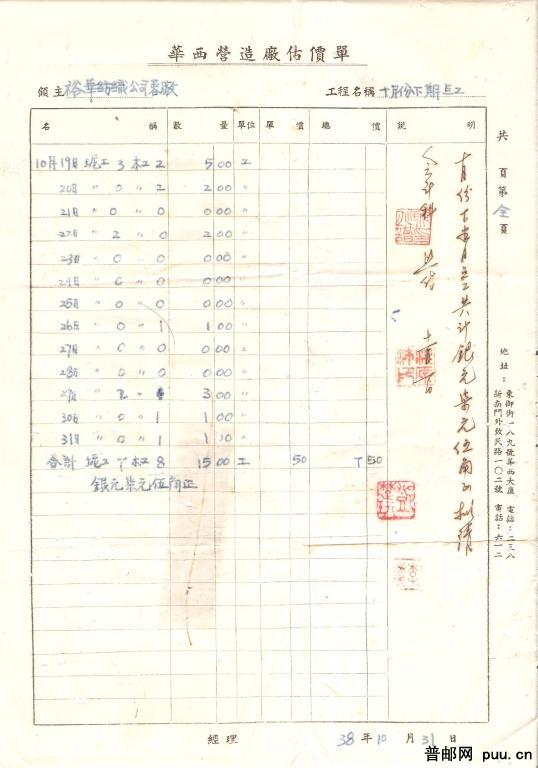 華西營造廠估價單
領主 裕華紡織公司蓉廠
工程名稱 十月份下期点工
名稱 數量 單位 單價 總價 說明
10月19日 坭工 3 木工 2 5 00 工
20日 〃 0 〃 2 2 00 〃
21日 〃 0 〃 0 0 00 〃
22日 〃 2 〃 0 2 00 〃
23日 〃 0 〃 0 0 00 〃
24日 〃 0 〃 0 0 00 〃
25日 〃 0 〃 0 0 00 〃
26日 〃 0 〃 1 1 00 〃
27日 〃 0 〃 0 0 00 〃
28日 〃 0 〃 0 0 00 〃
29日 〃 3 00 〃
30日 〃 0 〃 1 1 00 〃
31日 〃 0 〃 1 1 〃
合計 坭工 7 木工 8 15 00 工 50 7 50
銀元柒元伍角正
十月份下半月点工共計銀元柒元伍角正
會計科
共 頁第 全 頁
地址：
東御街一八九號華西大廈 電話：二三八
新南門外致民路一〇二號 電話：六一二
經理
38 年 10 月 31 日
普邮网 puu.cn